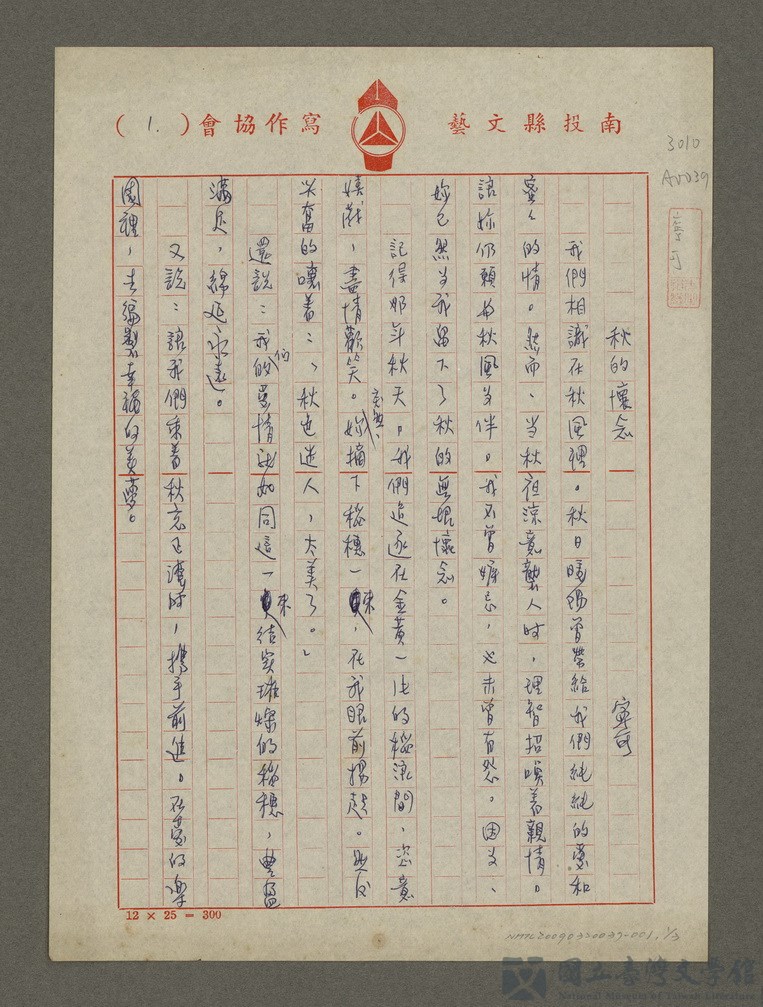 南投縣文藝寫作協會(1.)
3010
AV039
寧可
秋的懷念
寧可
我們相識在秋風裡。秋日暖陽曾帶給我們純純的愛和
蜜々的情。然而、當秋夜涼意襲人時,理智招喚着親情。
諾妳仍願與秋風為伴。我不曾嫉忌,也未曾有怨。因為、
妳已然為我留下了秋的無垠懷念。
記得那年秋天。我們追逐在金黃一片的稻浪間、恣意
嬉戲,盡情歡笑。突然、妳摘下稻穗一束,在我眼前揚起。興
奮的嚷着:、秋色迷人,太美了。」
還說:我們的愛情就如同這一束結實璀燦的稻穗,豐盈
滿足,綿延永遠。
又說:讓我們乘着秋意正濃時,攜手前進。在愛的樂
園裡,去編製幸福的美夢。
12 × 25 = 300
NMTL20090320039-001.1/3
國立臺灣文學館
National Museum of Taiwan Literature